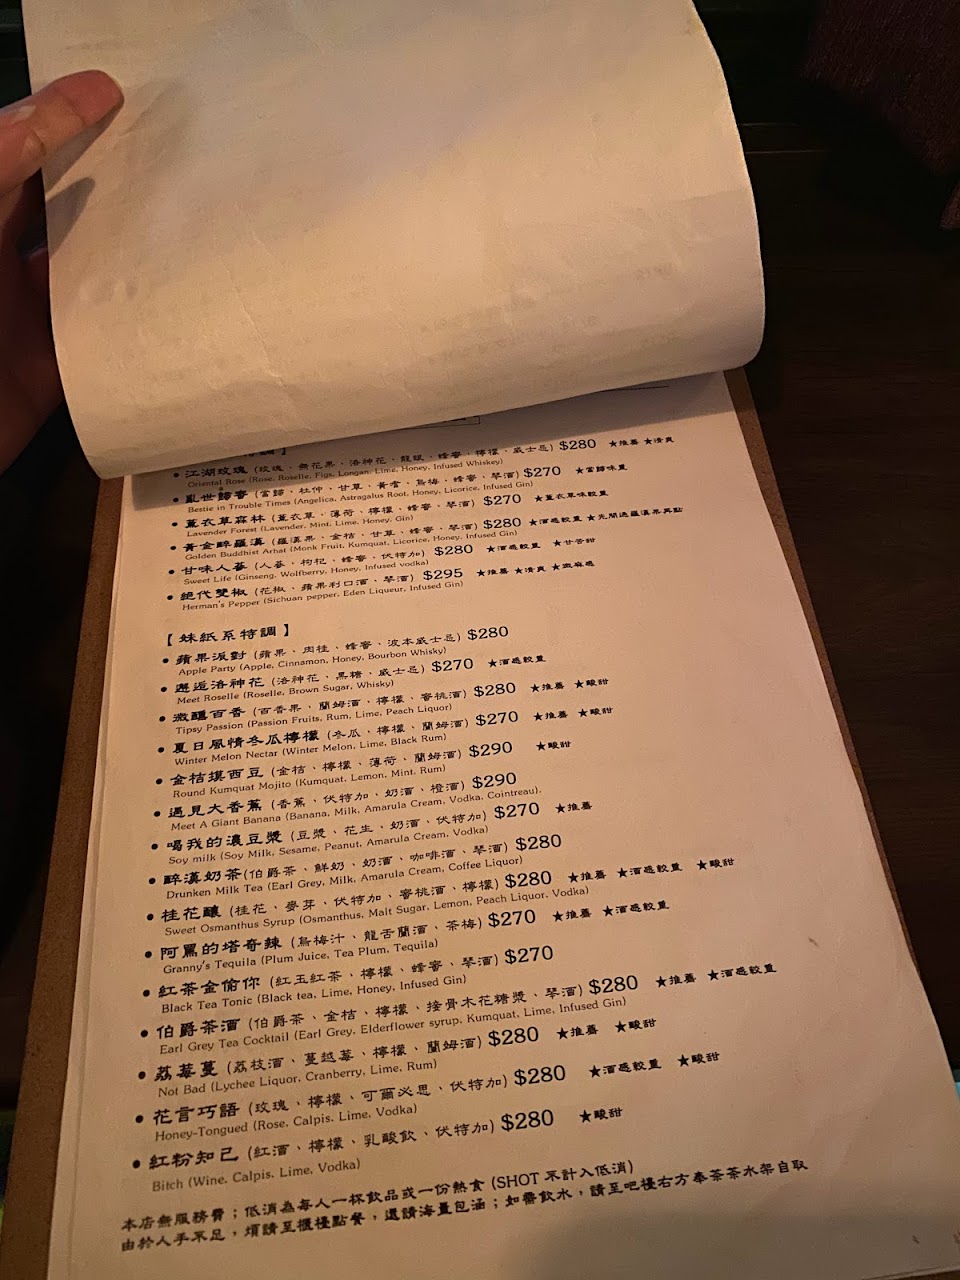 特調】
• 江湖玫瑰 (玫瑰、無花果、洛神花、龍眼、蜂蜜、檸檬、威士忌) $280 ★推薦 ★清爽
Oriental Rose (Rose, Roselle, Figs, Longan, Lime, Honey, Infused Whiskey)
• 亂世歸審 (當歸、杜仲、甘草、黃耆、烏梅、蜂蜜、琴酒) $270 ★當歸味重
Bestie in Trouble Times (Angelica, Astragalus Root, Honey, Licorice, Infused Gin)
• 薰衣草森林 (薰衣草、薄荷、檸檬、蜂蜜、琴酒) $270 ★薰衣草味較重
Lavender Forest (Lavender, Mint, Lime, Honey, Gin)
• 黃金醉羅漢 (羅漢果、金桔、甘草、蜂蜜、琴酒) $280 ★酒感較重 ★先聞過羅漢果再點
Golden Buddhist Arhat (Monk Fruit, Kumquat, Licorice, Honey, Infused Gin)
• 甘味人蔘 (人蔘、枸杞、蜂蜜、伏特加) $280 ★酒感較重 ★甘苦甜
Sweet Life (Ginseng, Wolfberry, Honey, Infused vodka)
• 絕代雙椒 (花椒、蘋果利口酒、琴酒) $295 ★推薦 ★清爽 ★微麻感
Herman's Pepper (Sichuan pepper, Eden Liqueur, Infused Gin)
【妹紙系特調】
• 蘋果派對 (蘋果、肉桂、蜂蜜、波本威士忌) $280
Apple Party (Apple, Cinnamon, Honey, Bourbon Whisky)
• 邂逅洛神花 (洛神花、黑糖、威士忌) $270 ★酒感較重
Meet Roselle (Roselle, Brown Sugar, Whisky)
• 微醺百香 (百香果、蘭姆酒、檸檬、蜜桃酒) $280 ★推薦 ★酸甜
Tipsy Passion (Passion Fruits, Rum, Lime, Peach Liquor)
• 夏日風情冬瓜檸檬 (冬瓜、檸檬、蘭姆酒) $270 ★推薦 ★酸甜
Winter Melon Nectar (Winter Melon, Lime, Black Rum)
• 金桔摸西豆 (金桔、檸檬、薄荷、蘭姆酒) $290 ★酸甜
Round Kumquat Mojito (Kumquat, Lemon, Mint, Rum)
• 遇見大香蕉 (香蕉、伏特加、奶酒、橙酒) $290
Meet A Giant Banana (Banana, Milk, Amarula Cream, Vodka, Cointreau).
• 喝我的濃豆漿 (豆漿、花生、奶酒、伏特加) $270 ★推薦
Soy milk (Soy Milk, Sesame, Peanut, Amarula Cream, Vodka)
• 醉漢奶茶(伯爵茶、鮮奶、奶酒、咖啡酒、琴酒) $280
Drunken Milk Tea (Earl Grey, Milk, Amarula Cream, Coffee Liquor)
• 桂花釀 (桂花、麥芽、伏特加、蜜桃酒、檸檬) $280 ★推薦 ★酒感較重 ★酸甜
Sweet Osmanthus Syrup (Osmanthus, Malt Sugar, Lemon, Peach Liquor, Vodka)
• 阿罵的塔奇辣 (烏梅汁、龍舌蘭酒、茶梅) $270 ★推薦 ★酒感較重
Granny's Tequila (Plum Juice, Tea Plum, Tequila)
• 紅茶金偷你 (紅玉紅茶、檸檬、蜂蜜、琴酒) $270
Black Tea Tonic (Black tea, Lime, Honey, Infused Gin)
• 伯爵茶酒 (伯爵茶、金桔、檸檬、接骨木花糖漿、琴酒) $280 ★推薦 ★酒感較重
Earl Grey Tea Cocktail (Earl Grey, Elderflower syrup, Kumquat, Lime, Infused Gin)
• 荔莓蔓 (荔枝酒、蔓越莓、檸檬、蘭姆酒) $280 ★推薦 ★酸甜
Not Bad (Lychee Liquor, Cranberry, Lime, Rum)
• 花言巧語 (玫瑰、檸檬、可爾必思、伏特加) $280 ★酒感較重 ★酸甜
Honey-Tongued (Rose, Calpis, Lime, Vodka)
• 紅粉知己 (紅酒、檸檬、乳酸飲、伏特加) $280 ★酸甜
Bitch (Wine, Calpis, Lime, Vodka)
本店無服務費；低消為每人一杯飲品或一份熱食 (SHOT 不計入低消)
由於人手不足，煩請至櫃檯點餐，還請海量包涵；如需飲水，請至吧檯右方奉茶茶水架自取